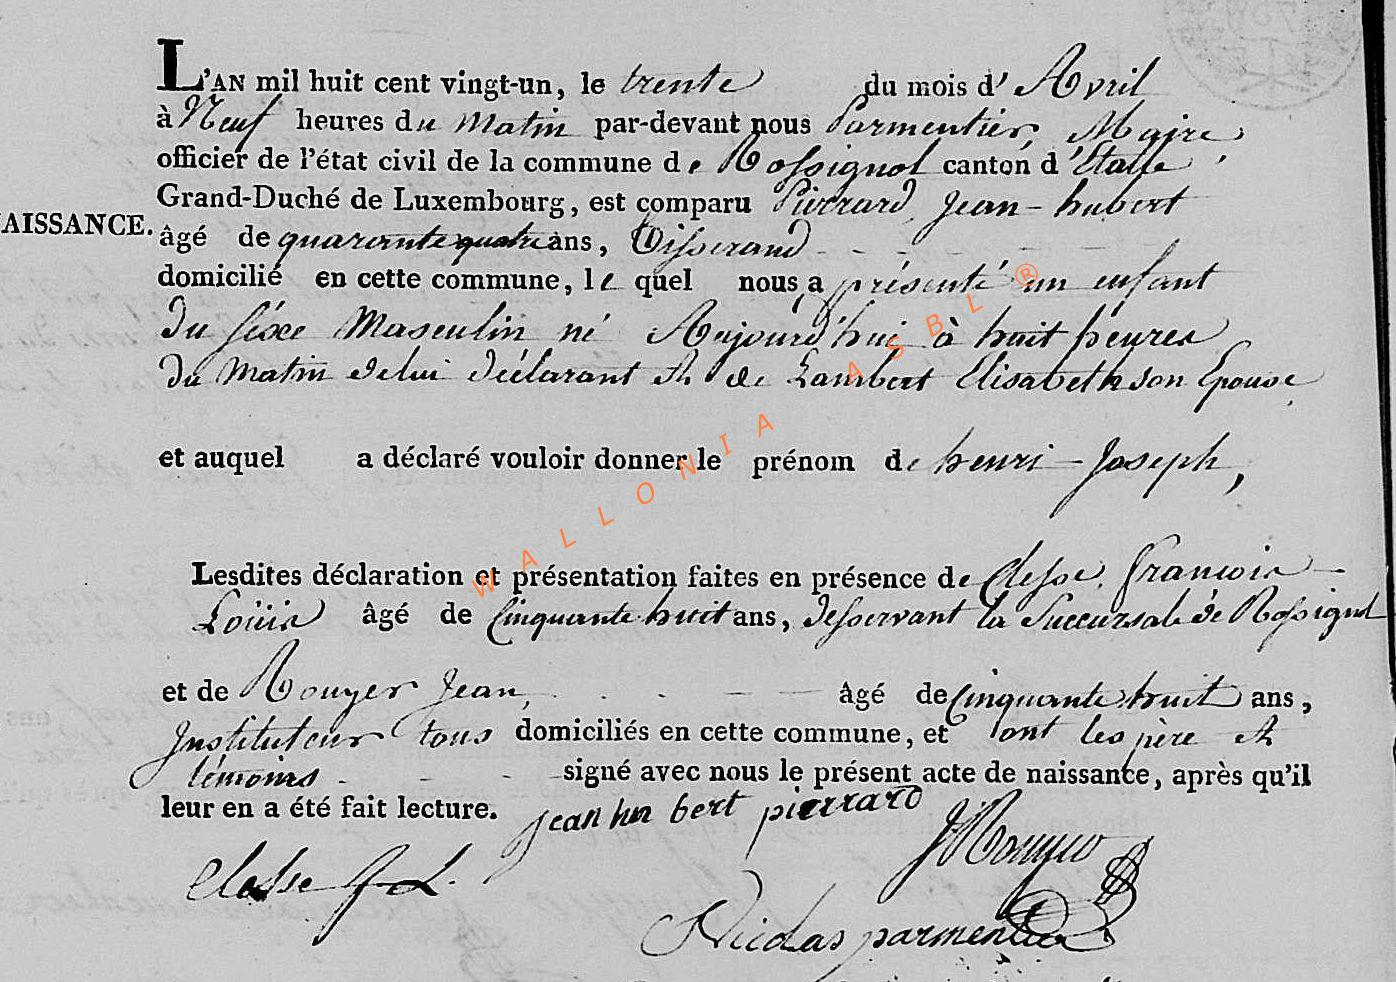 L'AN mil huit cent vingt-un, le trente du mois d'Avril
à Neuf heures du Matin par-devant nous Parmentier, Maire,
officier de l'état civil de la commune de Rossignol canton d'Etalle,
Grand-Duché de Luxembourg, est comparu Pierrard, Jean-hubert
NAISSANCE.
âgé de quarante quatre ans, Tisserand
domicilié en cette commune, le quel nous a présenté un enfant
du séxe Masculin né Aujourd'hui à huit heures
du Matin de lui déclarant et de Lambert Elisabeth son Epouse,
et auquel a déclaré vouloir donner le prénom de henri-Joseph,
Lesdites déclaration et présentation faites en présence de Clesse, François
Loüis âgé de Cinquante huit ans, desservant la Succursale de Rossignol
et de Rouyer Jean, âgé de Cinquante huit ans,
Instituteur tous domiciliés en cette commune, et ont les père et
témoins signé avec nous le présent acte de naissance, après qu'il
leur en a été fait lecture.
jean hubert pierrard
JRouyer
Clesse f. L.
Nicolas parmentier
WALLONIA ASBL ®